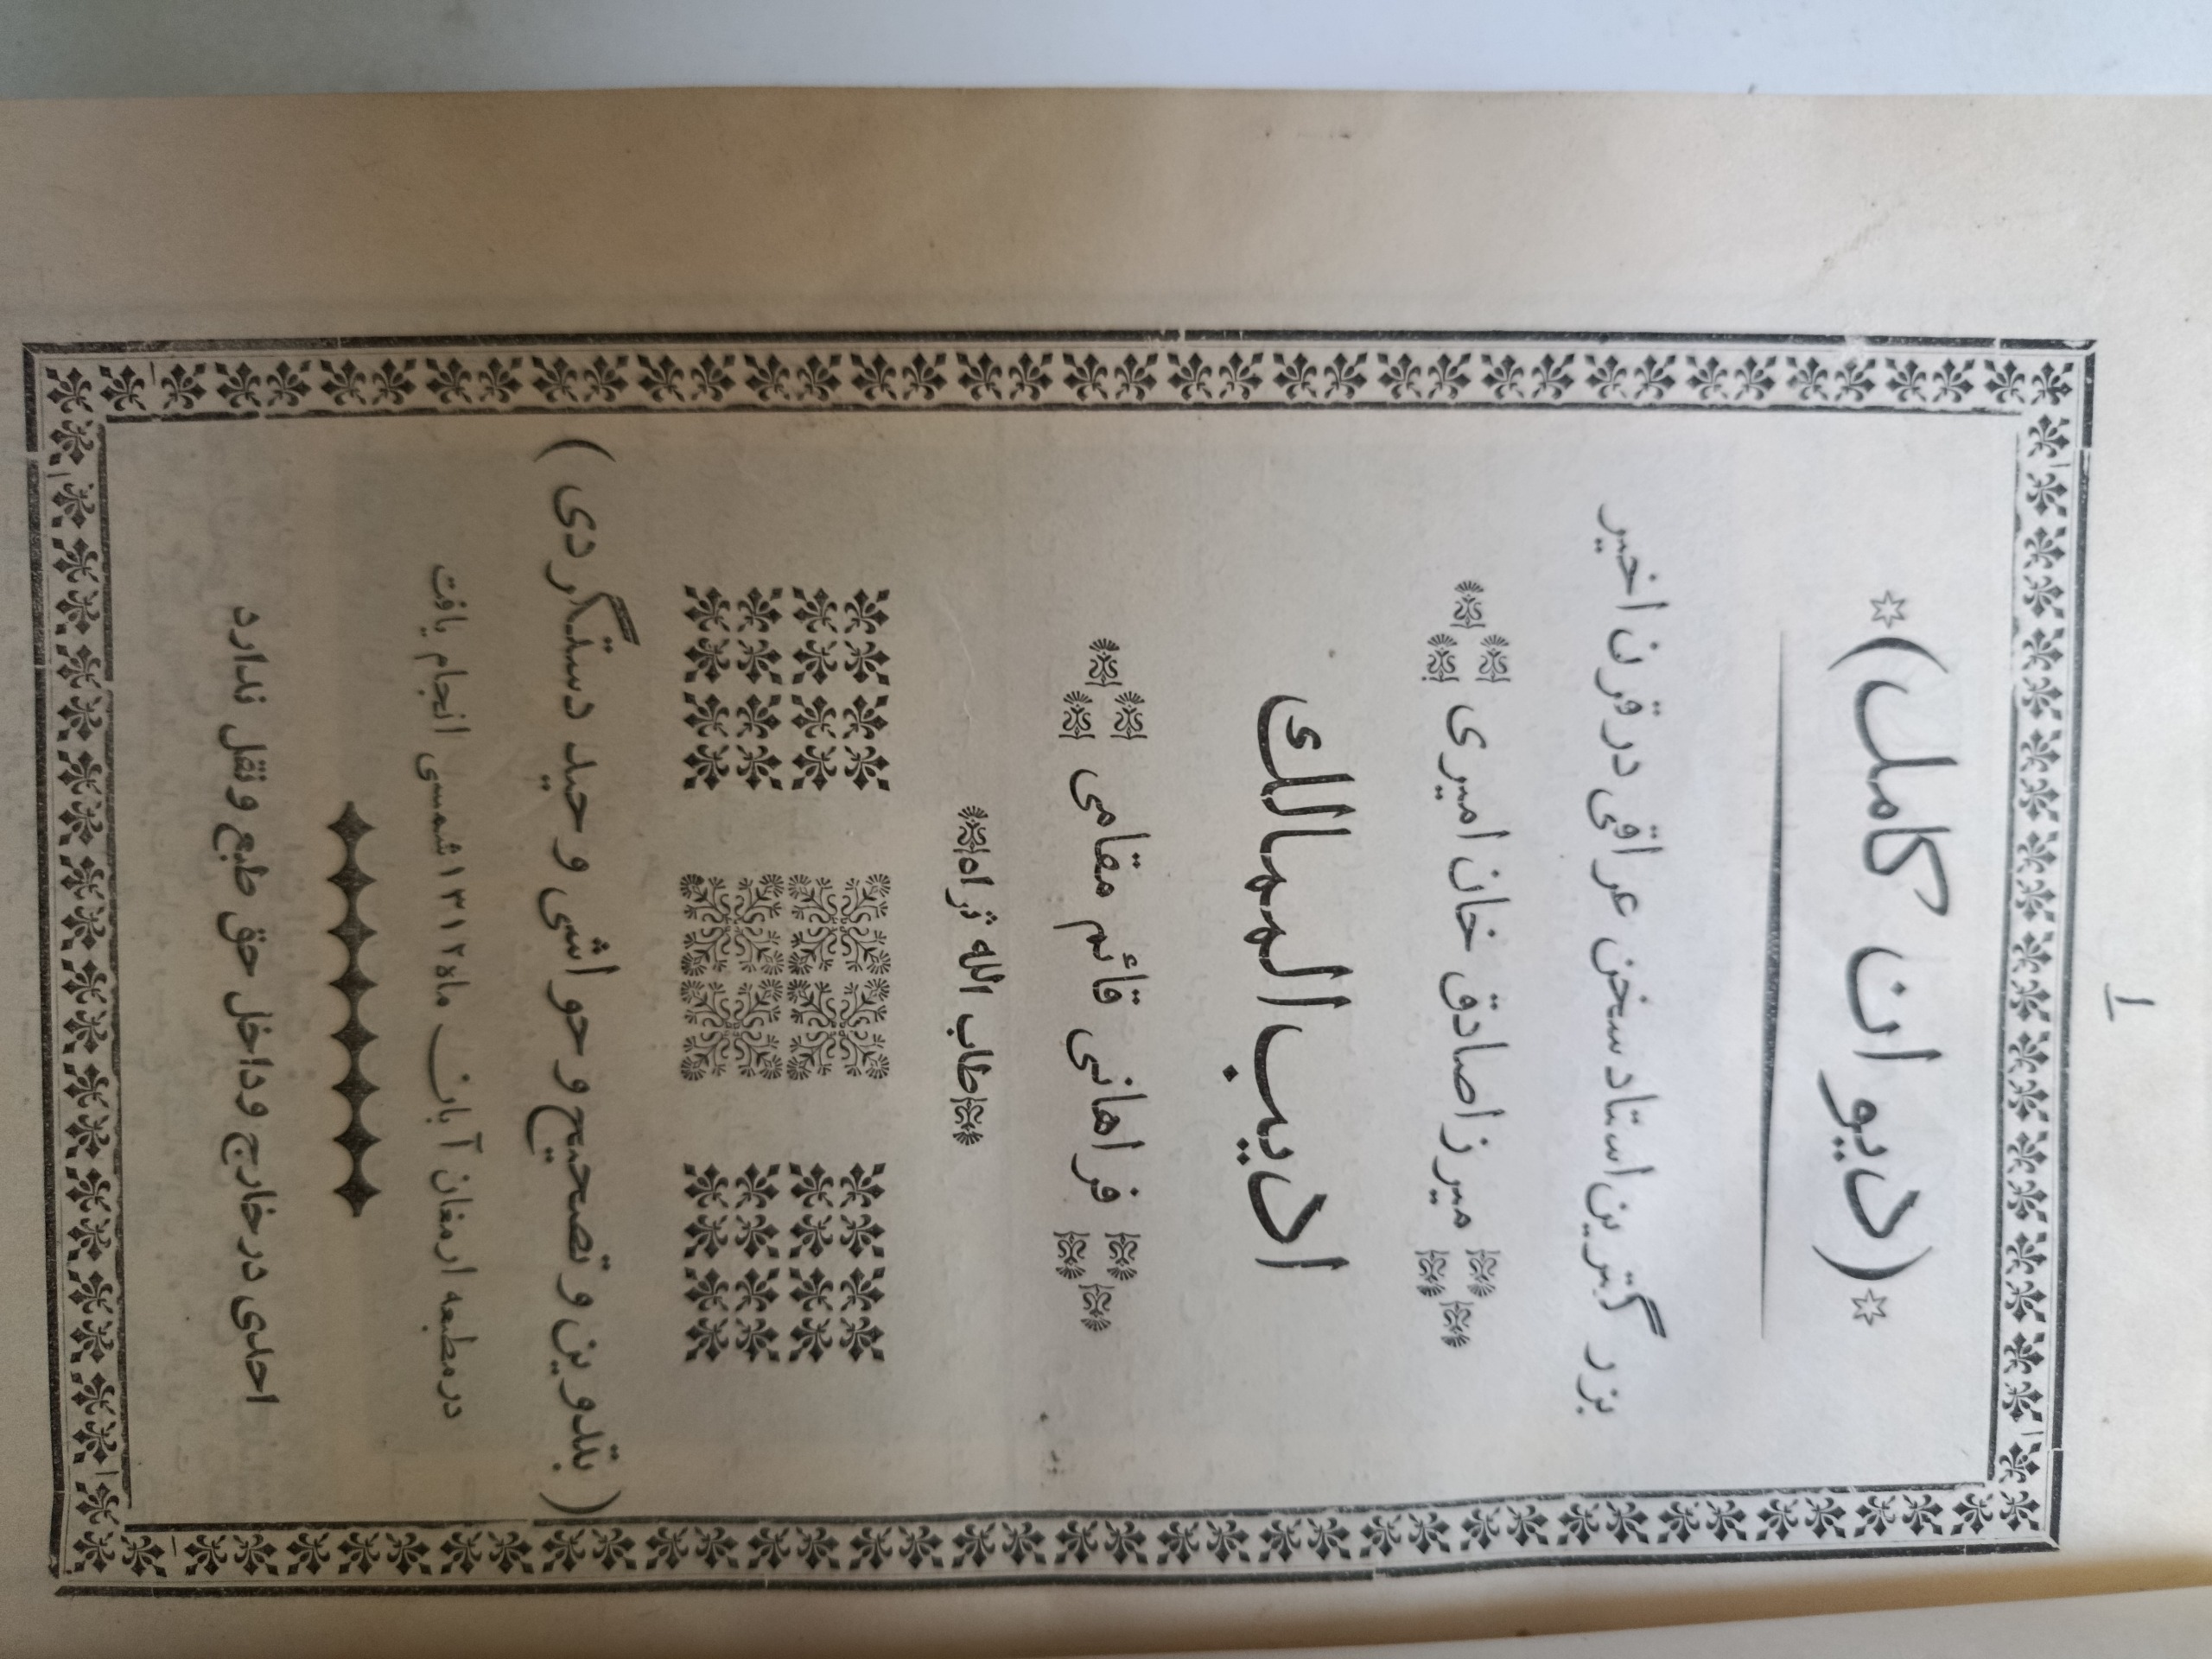 ۱
(دیوان کامل)
بزرگترین استاد سخن عراقی در قرن اخیر
میرزا صادق خان امیری
ادیب الممالک
فراهانی قائم مقامی
طاب الله ثراه
(بتدوین و تصحیح و حواشی وحید دستگردی)
در مطبعه ارمغان آبان ماه ۱۳۱۲ شمسی انجام یافت
احدی در خارج و داخل حق طبع و نقل ندارد